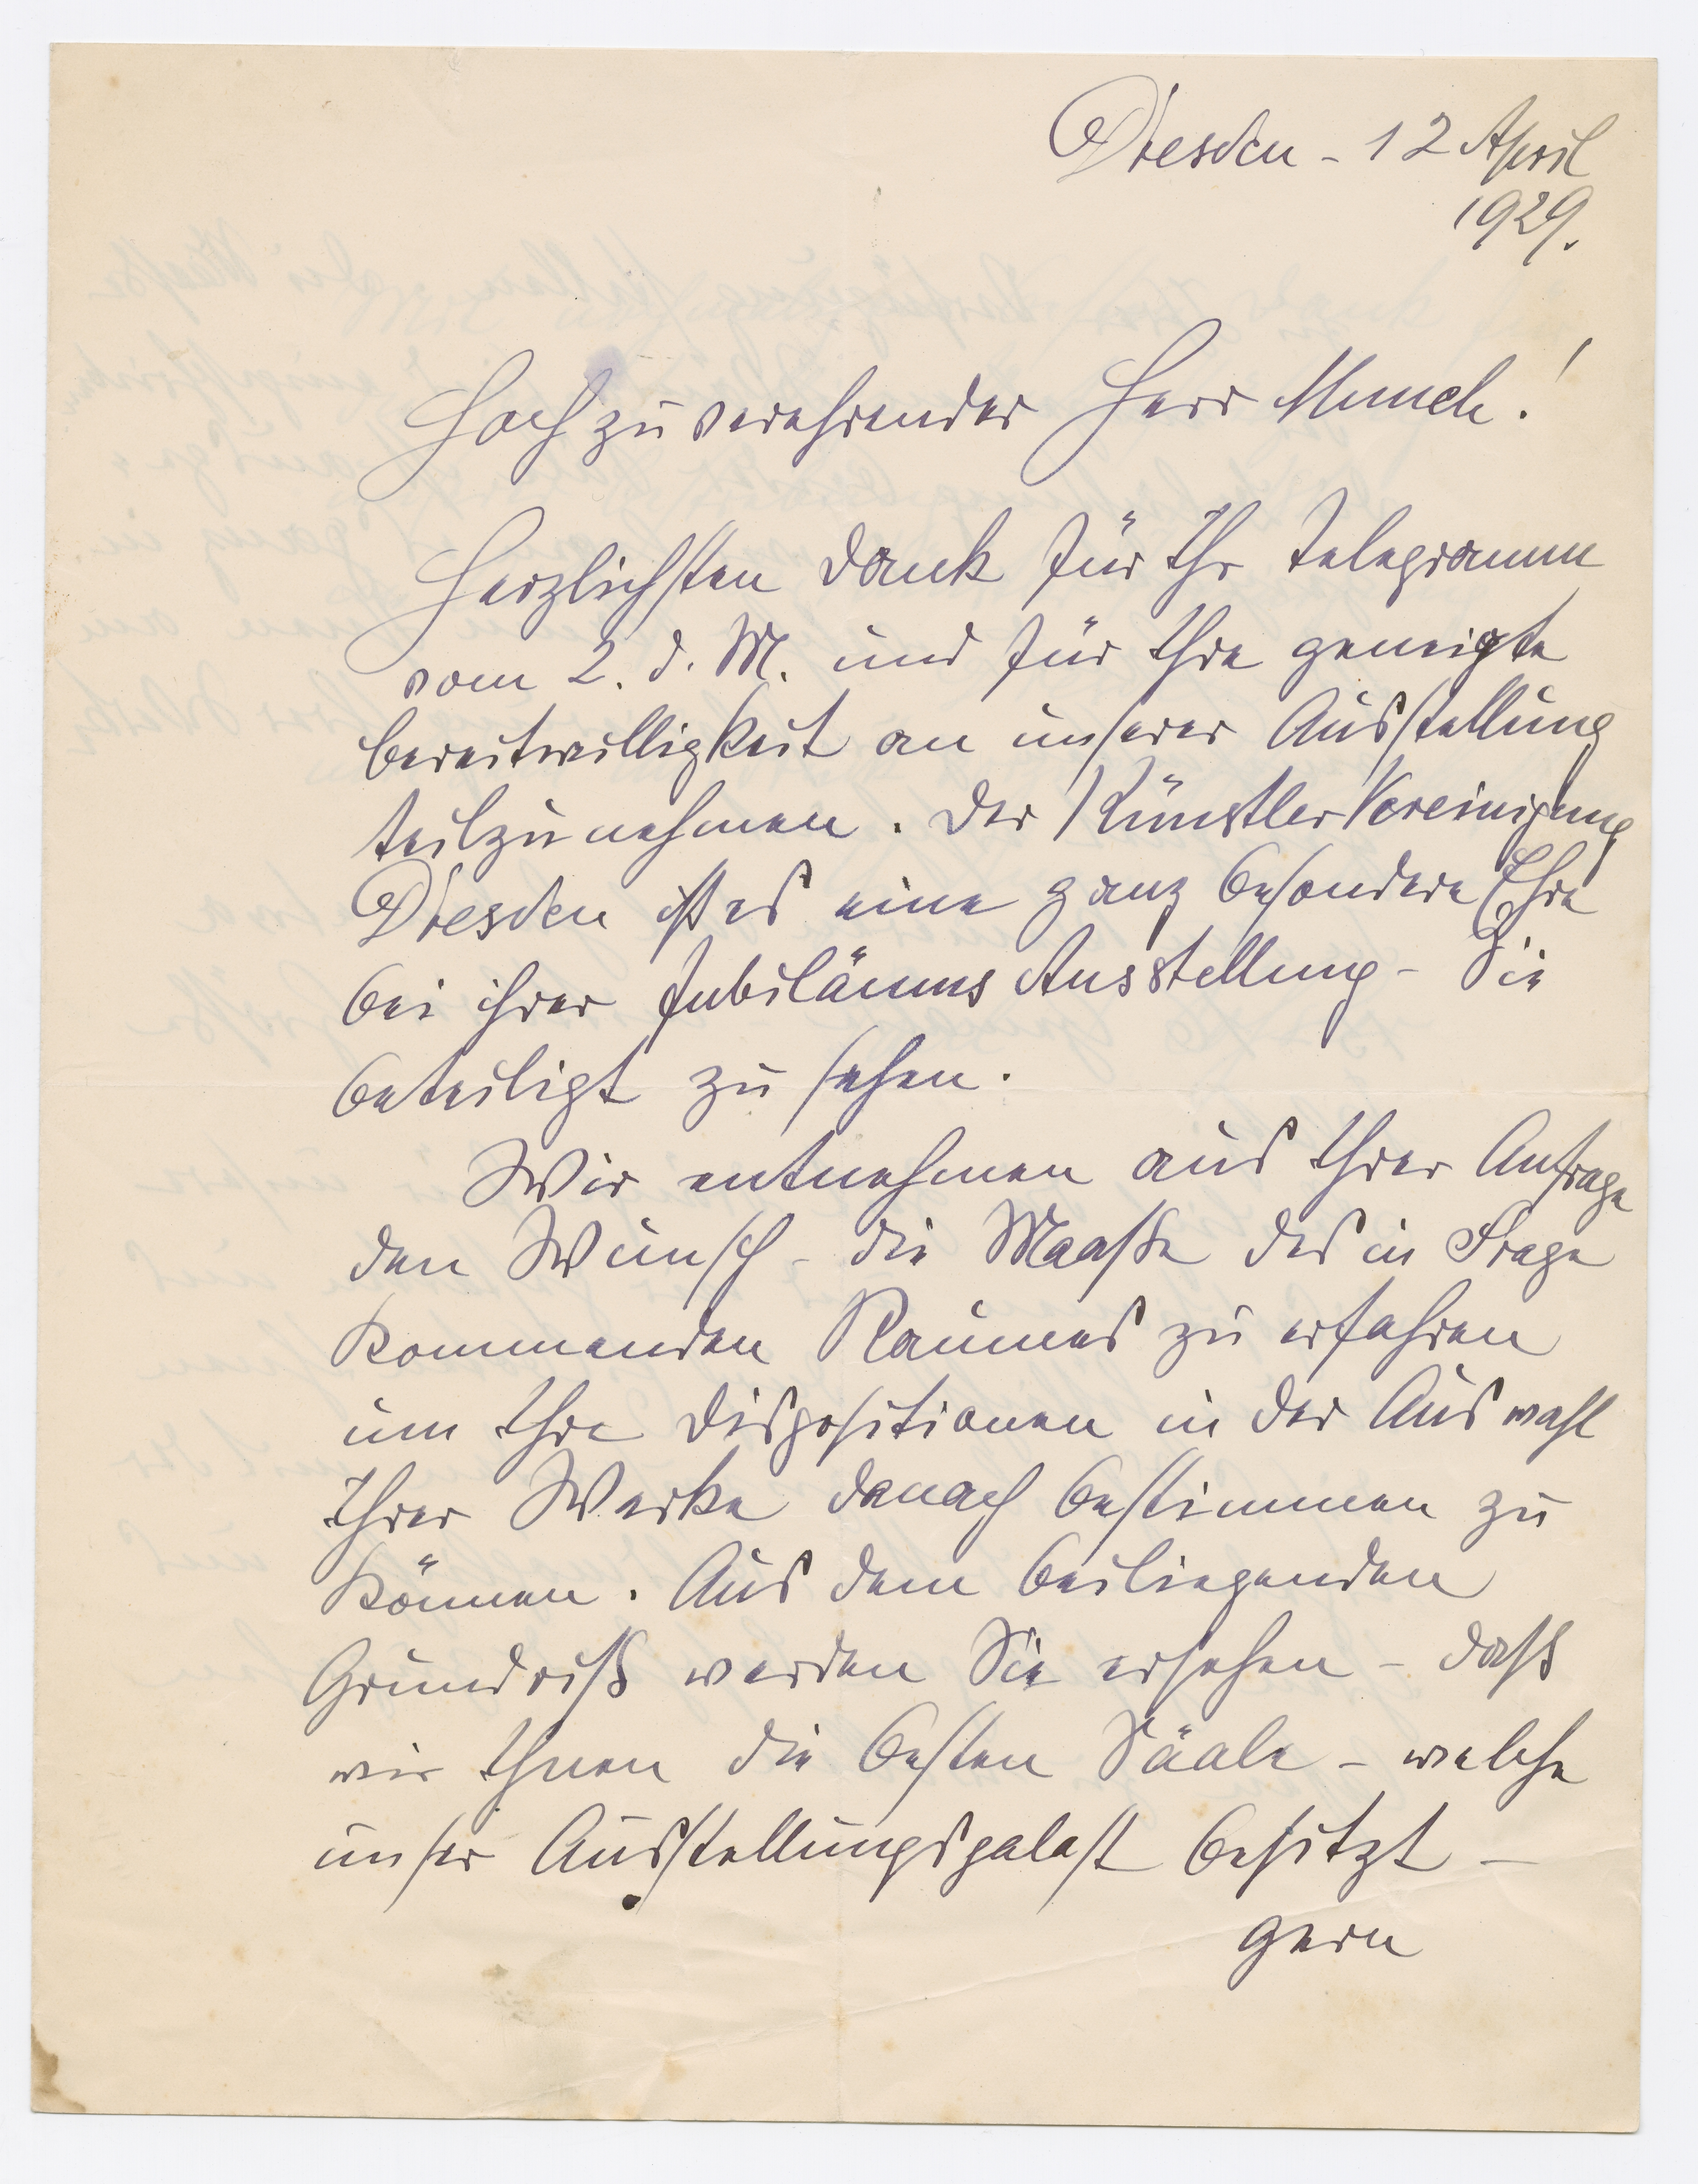 Dresden - 12 April
1929.
Hoch zu verehrender Herr Munch!
Herzlichsten Dank für Ihr Telegramm
vom 2. d. M. und für Ihre geneigte
Bereitwilligkeit an unserer Ausstellung
teilzunehmen. Der Künstler Vereinigung
Dresden ist es eine ganz besondere Ehre
bei ihrer Jubiläums Ausstellung - Sie
beteiligt zu sehen.
Wir entnehmen aus Ihrer Anfrage
den Wunsch - die Maaße des in Frage
kommenden Raumes zu erfahren
um Ihre Dispositionen in der Auswahl
Ihrer Werke danach bestimmen zu
können. Aus dem beiliegenden
Grundriß werden Sie ersehen - daß
wir Ihnen die besten Sääle - welche
unser Ausstellungspalast besitzt -
gern